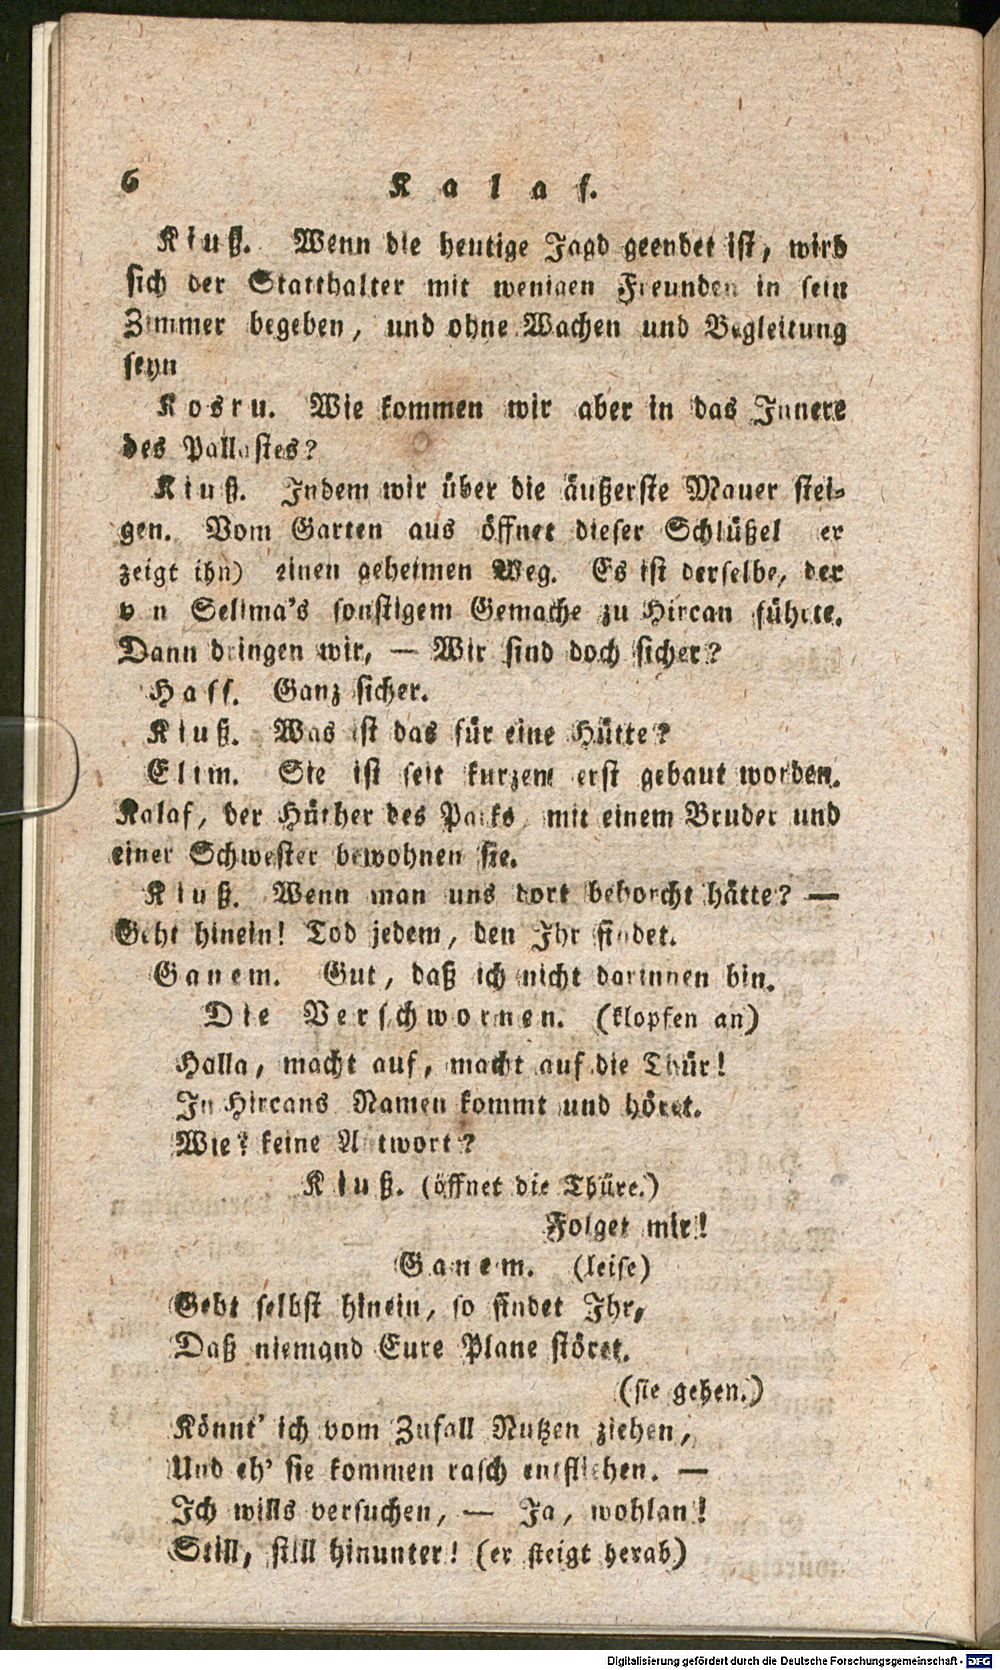 6 Kalaf.
Kiuß. Wenn die heutige Jagd geendet ist, wird
sich der Statthalter mit wenigen Freunden in sein
Zimmer begeben, und ohne Wachen und Begleitung
seyn
Kosru. Wie kommen wir aber in das Innere
des Pallastes?
Kiuß. Indem wir über die äußerste Mauer stei-
gen. Vom Garten aus öffnet dieser Schlüßel er
zeigt ihn) einen geheimen Weg. Es ist derselbe, der
von Selima's sonstigem Gemache zu Hircan führte.
Dann dringen wir, — Wir sind doch sicher?
Hass. Ganz sicher.
Kiuß. Was ist das für eine Hütte?
Elim. Sie ist seit kurzem erst gebaut worden.
Kalaf, der Hüther des Parks mit einem Bruder und
einer Schwester bewohnen sie.
Kiuß. Wenn man uns dort behorcht hätte? —
Geht hinein! Tod jedem, den Ihr findet.
Ganem. Gut, daß ich nicht darinnen bin.
Die Verschwornen. (klopfen an)
Halla, macht auf, macht auf die Thür!
In Hircans Namen kommt und höret.
Wie? keine Antwort?
Kiuß. (öffnet die Thüre.)
Folget mir!
Ganem. (leise)
Geht selbst hinein, so findet Ihr,
Daß niemand Eure Plane störet.
(sie gehen.)
Könnt' ich vom Zufall Nutzen ziehen,
Und eh' sie kommen rasch entfliehen. —
Ich wills versuchen, — Ja, wohlan!
Still, still hinunter! (er steigt herab)
Digitalisierung gefördert durch die Deutsche Forschungsgemeinschaft - DFG